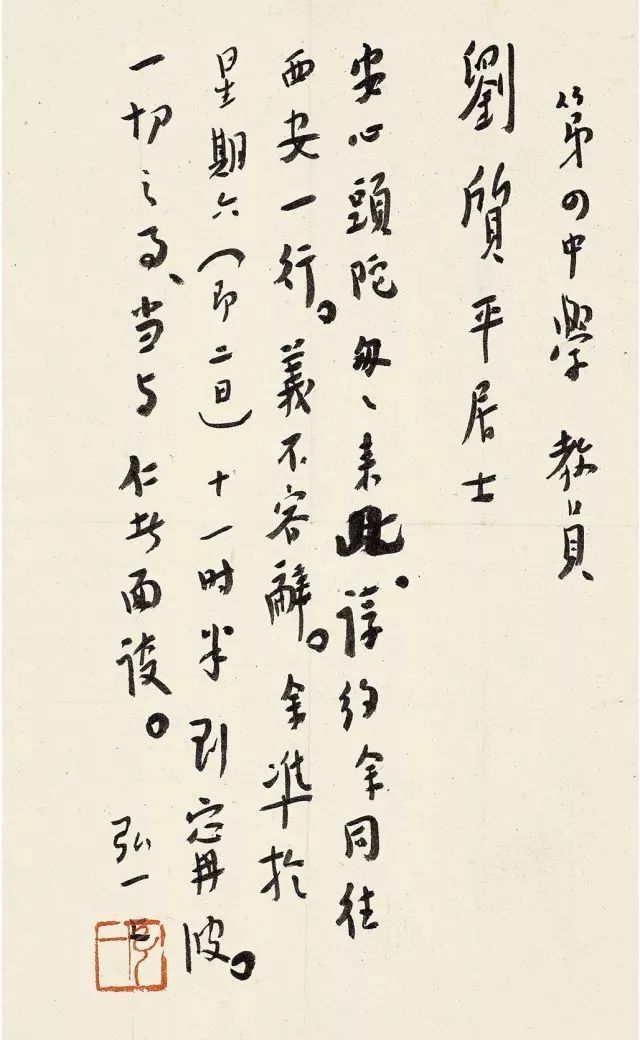 第四中學 教員
劉質平居士
安心頭陀匆匆来此。諄約余同往
西安一行。義不容辭。余準於
星期六（即二日）十一时半到寧波。
一切之事、当与仁者面談。
弘一上